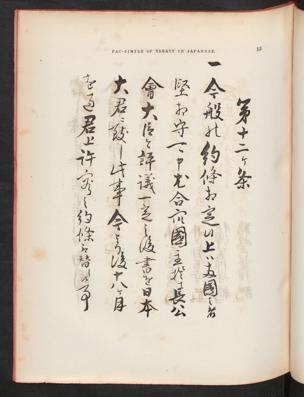 FAC-SIMILE OF TREATY IN JAPANESE. 13
第十二ヶ条
一今般の約條相定候上ハ両國之者
堅相守可申尤合衆國主於て長公
會大臣と評議一定之後書を日本
大君に致し此事今より後十八ヶ月
を過君上許容之約條取替候事